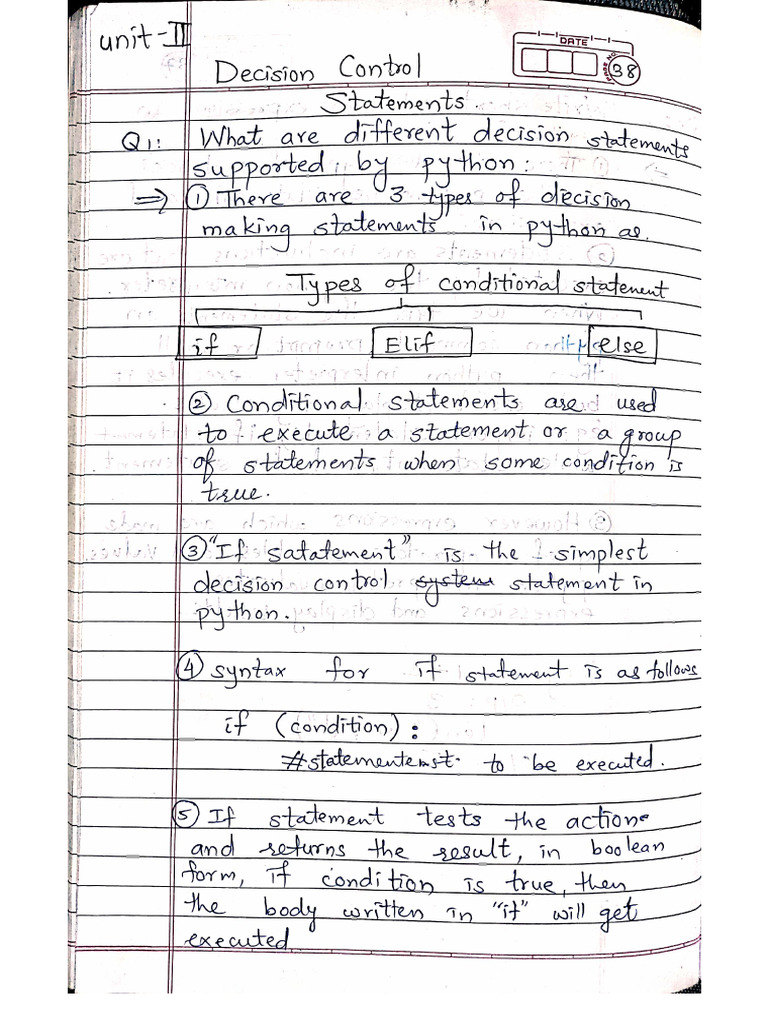 unit-II
DATE
PAGE NO. 38
Decision Control
Statements.
Q1: What are different decision statements
supported by python:
⇒ ① There are 3 types of decision
making statements in python as.
Types of conditional statement
if Elif else
② Conditional statements are used
to execute a statement or a group
of statements when some condition is
true.
③ "If satatement" is the simplest
decision control system statement in
python.
④ syntax for if statement is as follows
if (condition) :
#statementemst. to be executed.
⑤ If statement tests the action
and returns the result, in boolean
form, if condition is true, then
the body written in "if" will get
executed